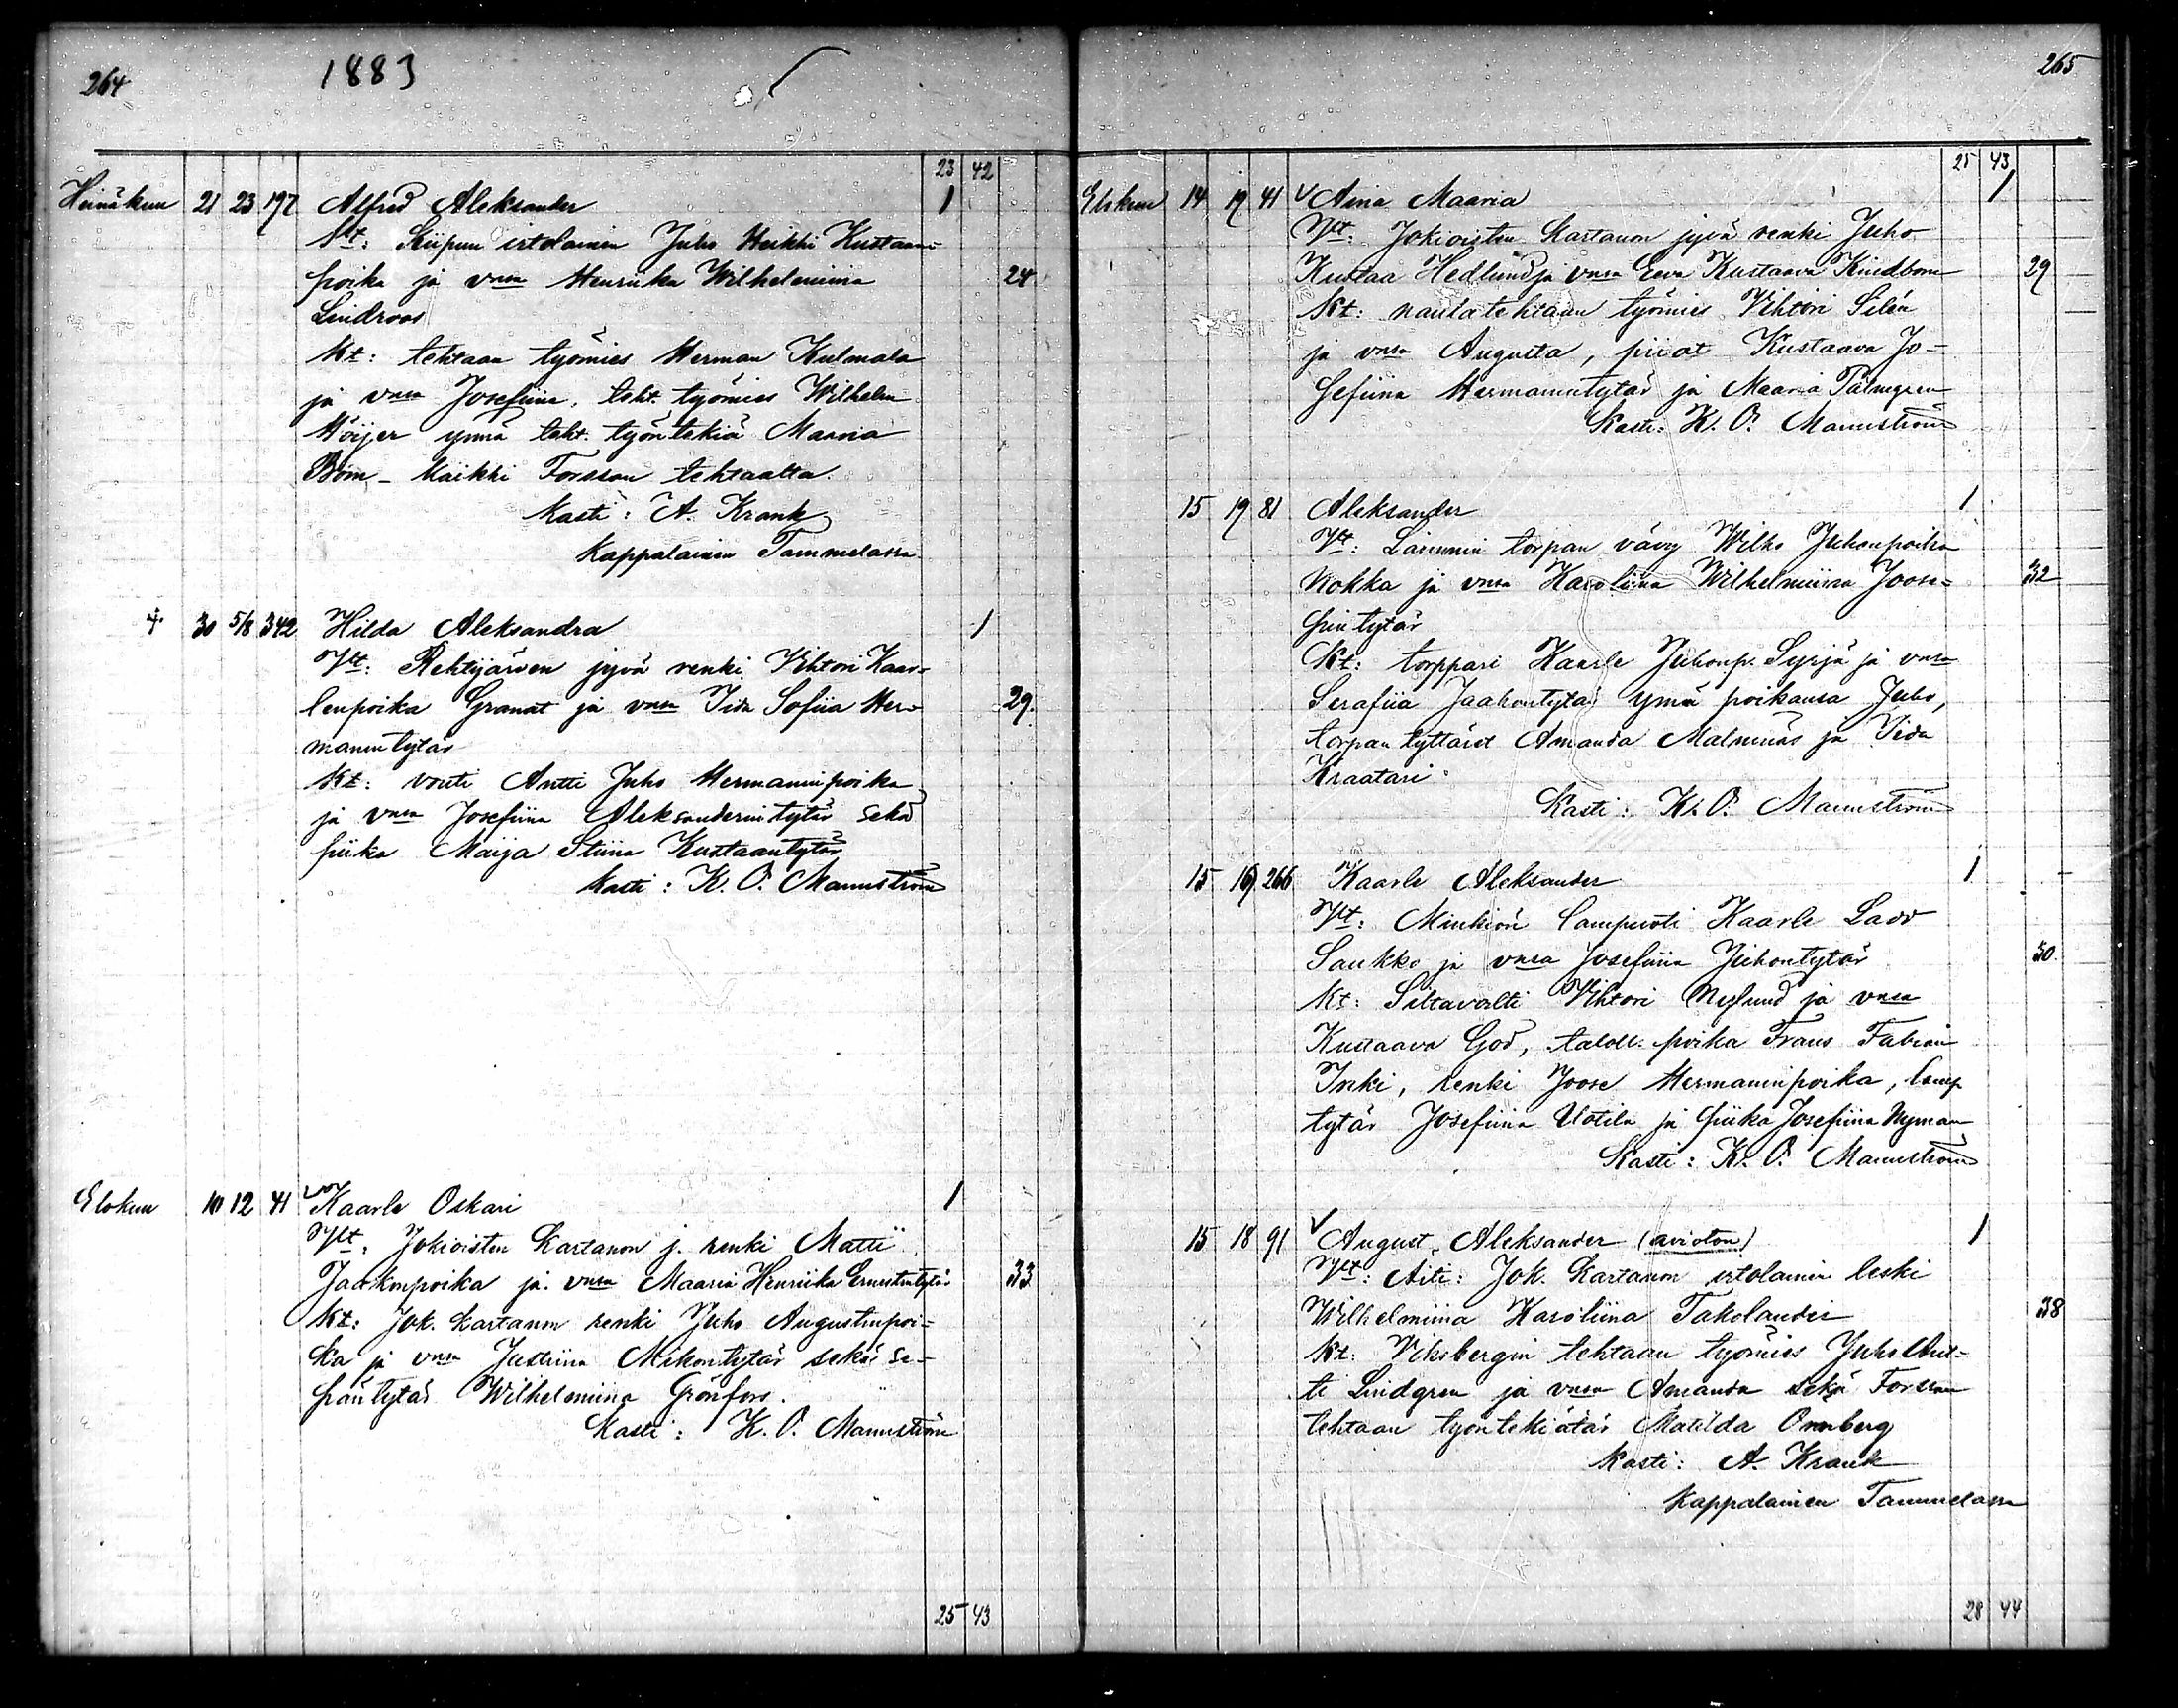 264
1883
23 42
Heinäkuu 21 23 197 Alfred Aleksander 1
Vt: Kiipun irtolainen Juho Heikki Kustaan-
poika ja vmsa Henriika Wilhelmiina 24
Lindroos
Kt: tehtaan työmies Herman Kulmala
ja vmsa Josefiina, teht. työmies Wilhelm
Höijer ynnä teht. työntekiä Maaria
Böm - kaikki Forssan tehtaalta.
Kasti: A. Krank
Kappalainen Tammelassa
30 5/8 342 Hilda Aleksandra 1
Vt: Rehtijärven jyvä renki Vihtori Kaar-
lenpoika Granat ja vmsa Iida Sofiia Her- 29.
manintytär
Kt: vouti Antti Juho Hermanninpoika
ja vmsa Josefiina Aleksanderintytär sekä
piika Maija Stiina Kustaantytär
Kasti: K. O. Mannström
Elokuu 10 12 41 Kaarle Oskari 1
Vt: Jokioisten Kartanon j. renki Matti
Jaakonpoika ja vmsa Maaria Henriika Ernestintytär 33
Kt: Jok. kartanon renki Juho Augustinpoi-
ka ja vmsa Justiina Mikontytär sekä se-
päntytär Wilhelmiina Grönfors.
Kasti: K. O. Mannström
25 43
265
25 43
Elokuu 14 19 41 Aina Maaria 1
Vt: Jokioisten Kartanon jyvä renki Juho
Kustaa Hedlund ja vmsa Eeva Kustaava Kindbom 29
Kt: naulatehtaan työmies Vihtori Silén
ja vmsa Augusta, piiat Kustaava Jo-
sefiina Hermannintytär ja Maaria Palmgren
Kasti: K. O. Mannström
15 19 81 Aleksander 1
Vt: Lammin torpan vävy Wilho Juhonpoika
Nokka ja vmsa Karoliina Wilhelmiina Joose- 32
pintytär
Kt: torppari Kaarle Juhonp. Syrjä ja vmsa
Serafiia Jaakontytär ynnä poikansa Juho,
torpan tyttäret Amanda Malmnäs ja Iida
Kraatari
Kasti: K. O. Mannström
15 19 266 Kaarle Aleksander 1
Vt: Minkiön lampuoti Kaarle
Saukko ja vmsa Josefiina Juhontytär 30.
Kt: Siltavolti Vihtori Nylund ja vmsa
Kustaava God, taloll. poika Frans Fabian
Inki, renki Joose Hermanninpoika, lamp
tytär Josefiina Uotila ja piika Josefiina Nyman
Kasti: K. O. Mannström
15 18 91 August Aleksander (avioton) 1
Vt: Äiti: Jok. Kartanon irtolainen leski
Wilhelmiina Karoliina Takolander 38
Kt: Viksbergin tehtaan työmies Juho Ant-
ti Lindgren ja vmsa Amanda sekä Forssan
tehtaan työntekiätär Matilda Ornberg
Kasti: A. Krank
Kappalainen Tammelassa
28 44